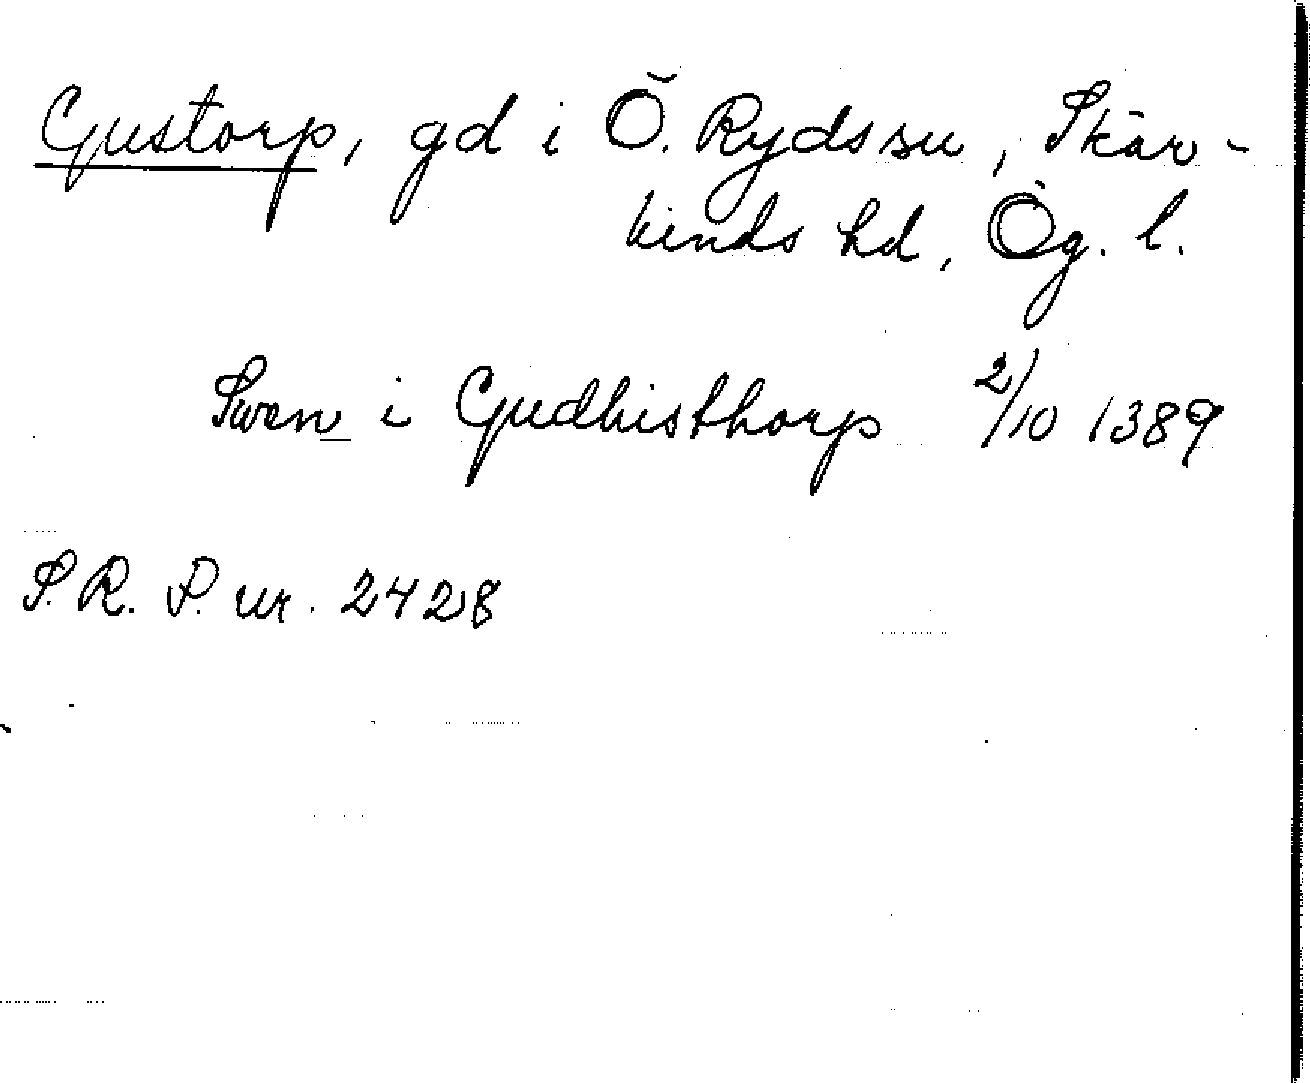 Gustorp, gd i Ö. Ryds sn, Skär-
kinds hd, Ög. l.
Swen i Gudhisthorp 2/10 1389
S. R. P. nr. 2428